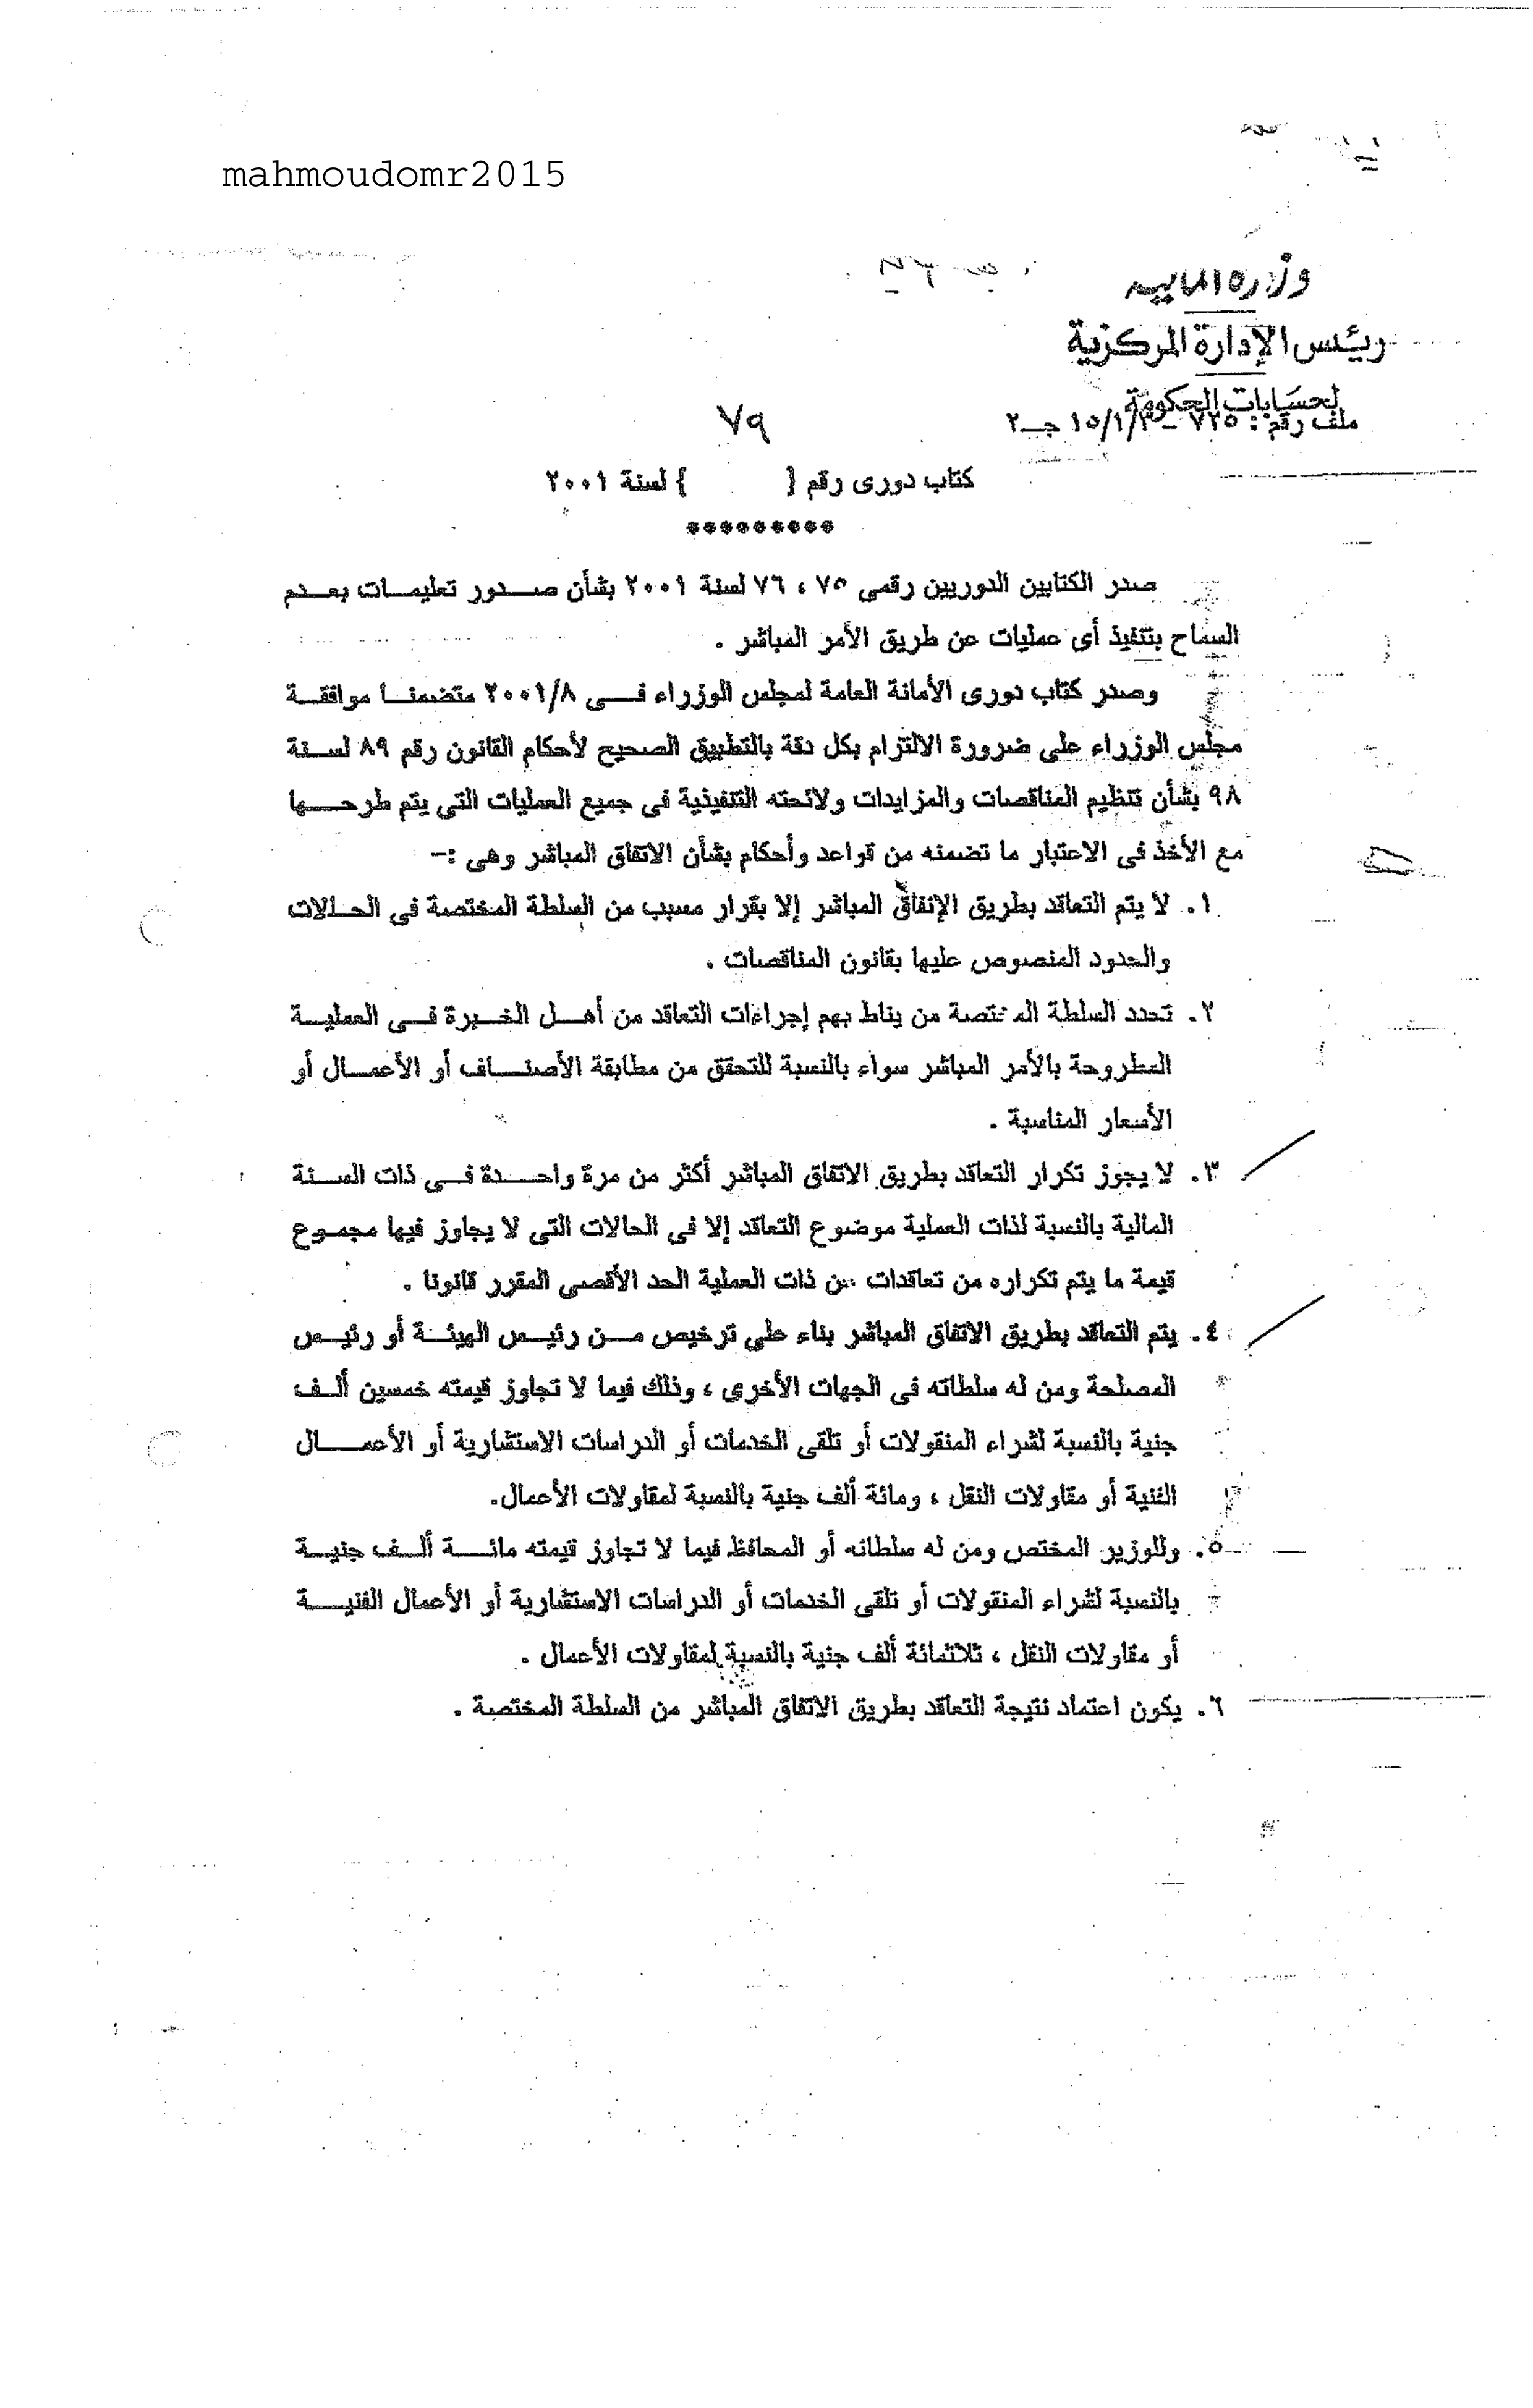 mahmoudomr2015
وزارة المالية
رئيس الإدارة المركزية
لحسابات الحكومة
ملف رقم : ٧٢٥ – ١٥/١/٣ جـ٢
٧٩
كتاب دورى رقم { } لسنة ٢٠٠١
*********
صدر الكتابين الدوريين رقمى ٧٥ ، ٧٦ لسنة ٢٠٠١ بشأن صدور تعليمات بعدم
السماح بتنفيذ أى عمليات عن طريق الأمر المباشر .
وصدر كتاب دورى الأمانة العامة لمجلس الوزراء فى ٢٠٠١/٨ متضمنا موافقة
مجلس الوزراء على ضرورة الالتزام بكل دقة بالتطبيق الصحيح لأحكام القانون رقم ٨٩ لسنة
٩٨ بشأن تنظيم المناقصات والمزايدات ولائحته التنفيذية فى جميع العمليات التى يتم طرحها
مع الأخذ فى الاعتبار ما تضمنه من قواعد وأحكام بشأن الاتفاق المباشر وهى :–
١. لا يتم التعاقد بطريق الإتفاق المباشر إلا بقرار مسبب من السلطة المختصة فى الحالات
والحدود المنصوص عليها بقانون المناقصات .
٢. تحدد السلطة المختصة من يناط بهم إجراءات التعاقد من أهل الخبرة فى العملية
المطروحة بالأمر المباشر سواء بالنسبة للتحقق من مطابقة الأصناف أو الأعمال أو
الأسعار المناسبة .
٣. لا يجوز تكرار التعاقد بطريق الاتفاق المباشر أكثر من مرة واحدة فى ذات السنة
المالية بالنسبة لذات العملية موضوع التعاقد إلا فى الحالات التى لا يجاوز فيها مجموع
قيمة ما يتم تكراره من تعاقدات عن ذات العملية الحد الأقصى المقرر قانونا .
٤. يتم التعاقد بطريق الاتفاق المباشر بناء على ترخيص من رئيس الهيئة أو رئيس
المصلحة ومن له سلطاته فى الجهات الأخرى ، وذلك فيما لا تجاوز قيمته خمسين ألف
جنية بالنسبة لشراء المنقولات أو تلقى الخدمات أو الدراسات الاستشارية أو الأعمال
الفنية أو مقاولات النقل ، ومائة ألف جنية بالنسبة لمقاولات الأعمال.
٥. وللوزير المختص ومن له سلطاته أو المحافظ فيما لا تجاوز قيمته مائة ألف جنية
بالنسبة لشراء المنقولات أو تلقى الخدمات أو الدراسات الاستشارية أو الأعمال الفنية
أو مقاولات النقل ، ثلاثمائة ألف جنية بالنسبة لمقاولات الأعمال .
٦. يكون اعتماد نتيجة التعاقد بطريق الاتفاق المباشر من السلطة المختصة .